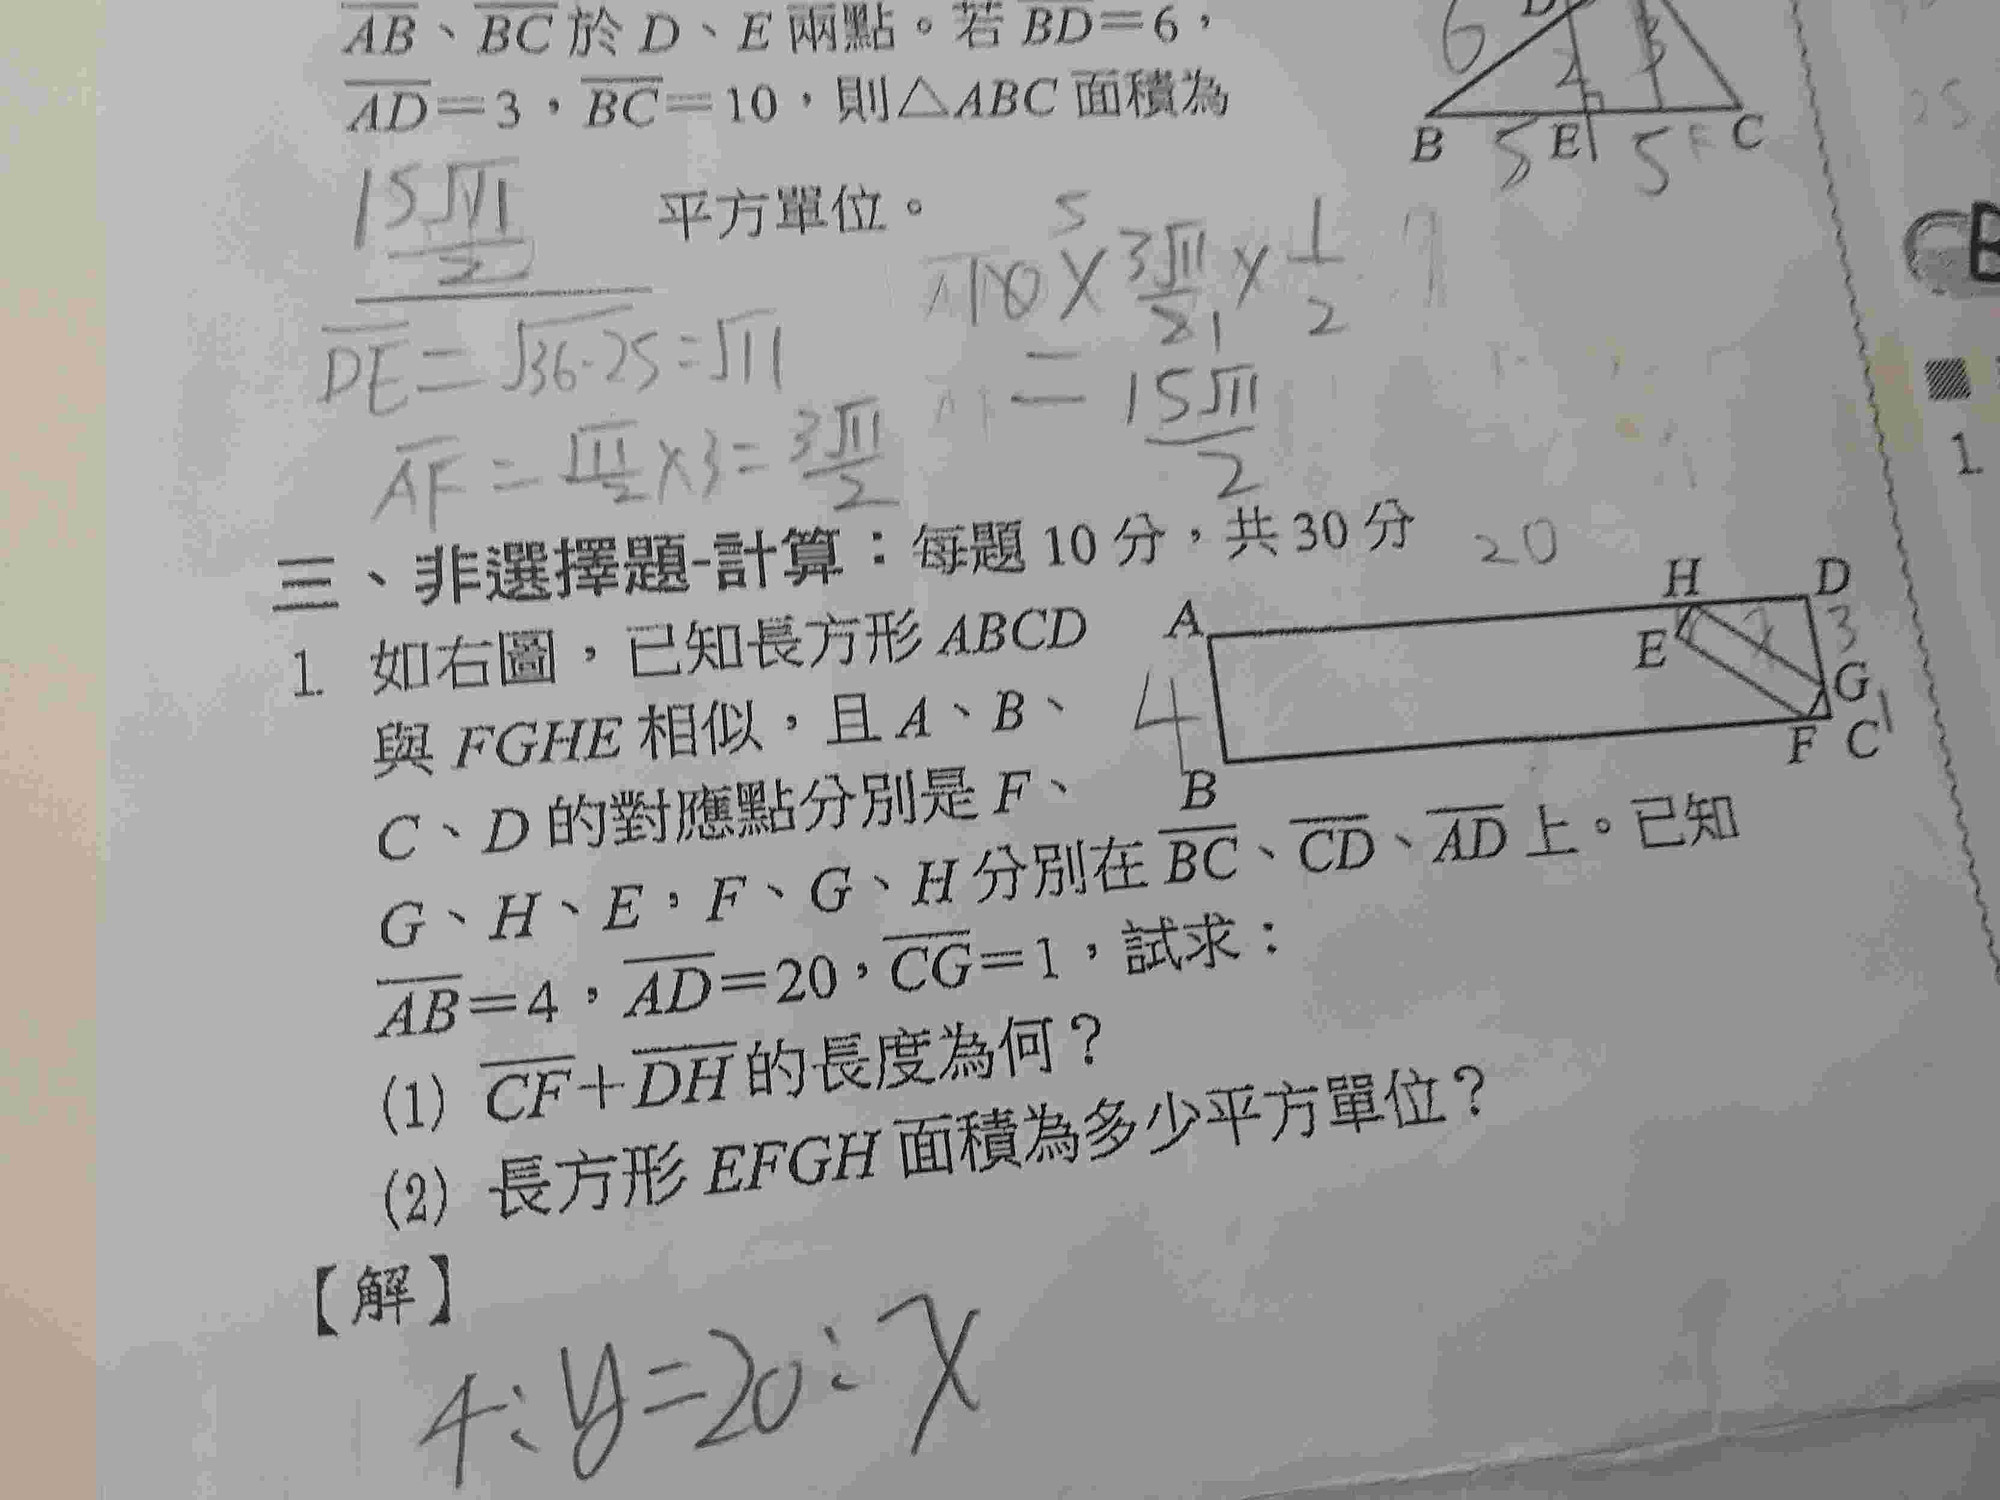 AB、BC於 D、E 兩點。若 BD=6，
AD=3，BC=10，則△ABC 面積為
15√11/2 平方單位。
DE=√36-25=√11
AF=√11/2×3=3√11/2
10×3√11/2×1/2
=15√11/2
6
B 5 E 5 F C
三、非選擇題-計算：每題 10 分，共 30 分
1 如右圖，已知長方形 ABCD
與 FGHE 相似，且 A、B、
C、D 的對應點分別是 F、
G、H、E，F、G、H 分別在 BC、CD、AD 上。已知
AB=4，AD=20，CG=1，試求：
(1) CF+DH 的長度為何？
(2) 長方形 EFGH 面積為多少平方單位？
20
A H D
E 3
4 G 1
B F C
【解】
4:y=20:x
B
1